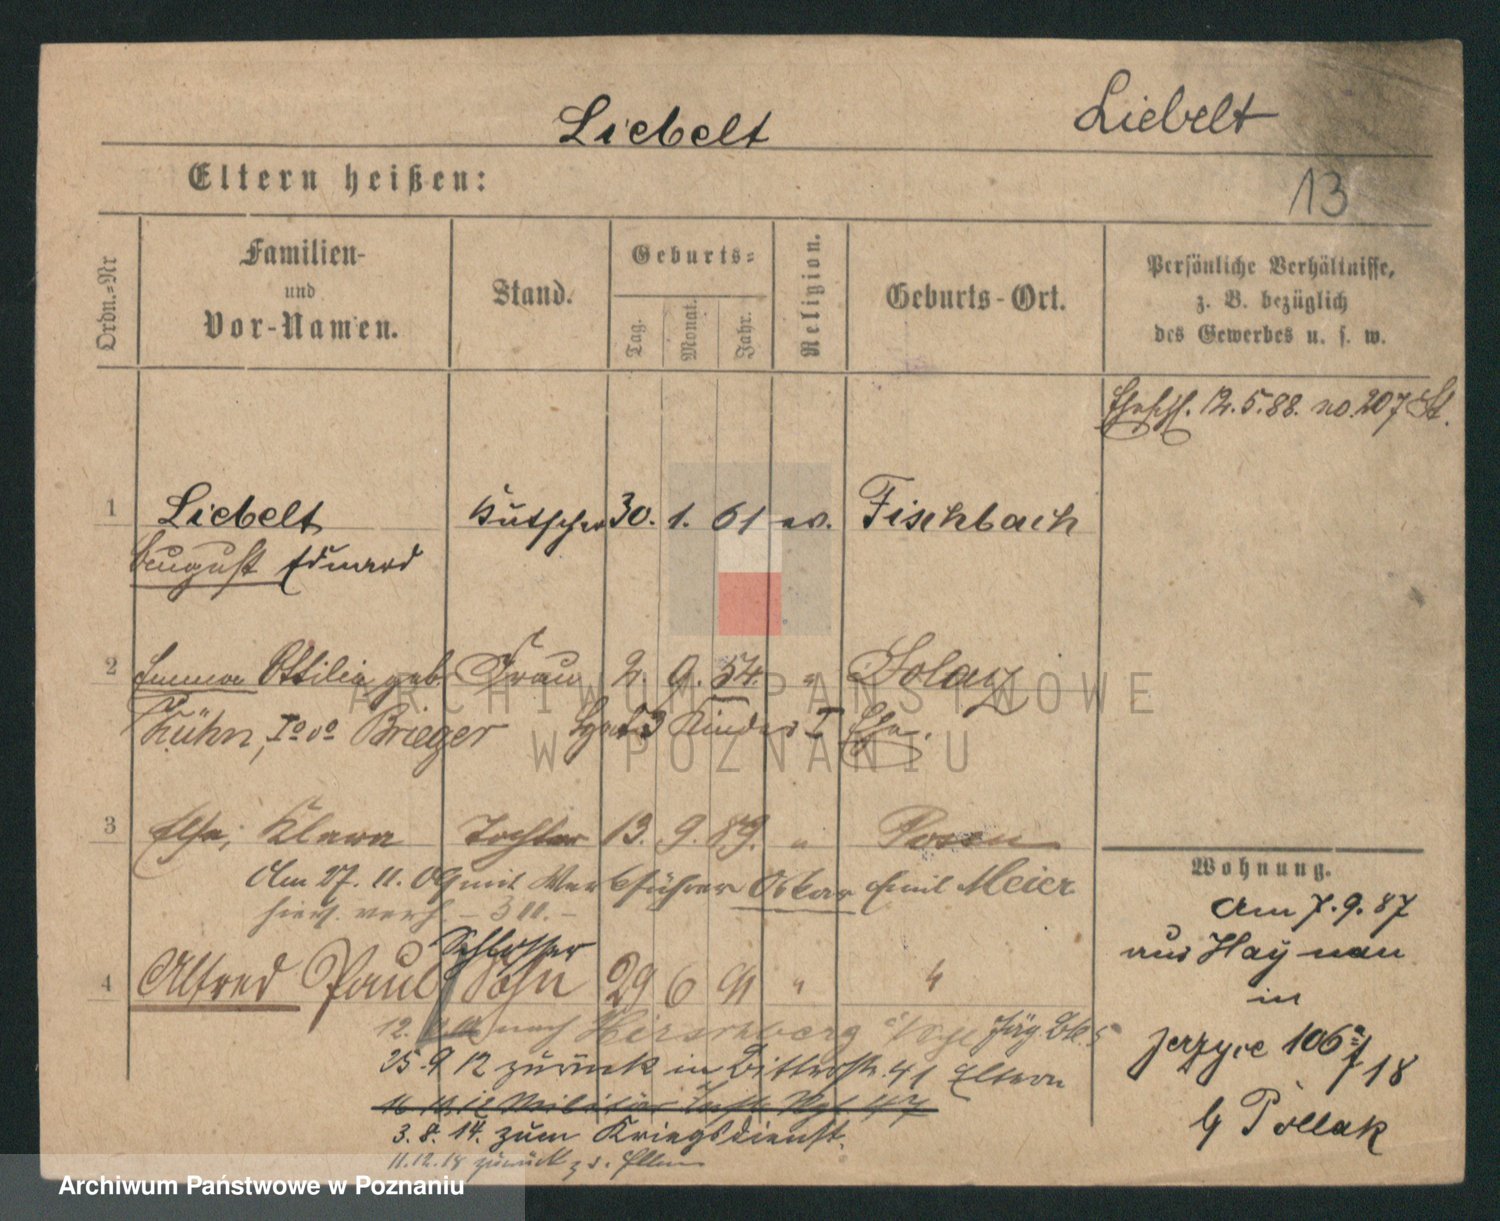 Liebelt Liebelt
Eltern heißen:
13
Ordn.-Nr
Familien-
und
Vor-Namen.
Stand.
Geburts-
Tag. Monat. Jahr.
Religion.
Geburts-Ort.
Persönliche Verhältnisse,
z. B. bezüglich
des Gewerbes u. s. w.
12.5.88. no. 207 St.
1 Liebelt Kutscher 30. 1. 61 ev. Fischbach
August Eduard
2 Emma Ottilie geb. Frau 2. 9. 54. "
Kühn, Io vo Brieger 3 Kinder I Ehe.
3 Else, Klara Tochter 13. 9. 89. " Posen
Am 27. 11. 09 mit Werkführer Oskar Emil Meier
hier verh.
Schlosser
4 Alfred Paul Sohn 29 6 91 " "
12. nach Hirschberg Jäg. Btl. 5
25.9 12 zurück in Bitterstr. 41 Eltern
3. 8. 14. zum Kriegsdienst.
11.12.18 zurück z. d. Eltern
Wohnung.
Am 7.9.87
aus Haynau
in
Jerzyce 106a/18
b/ Pollak
ARCHIWUM PAŃSTWOWE
W POZNANIU
Archiwum Państwowe w Poznaniu